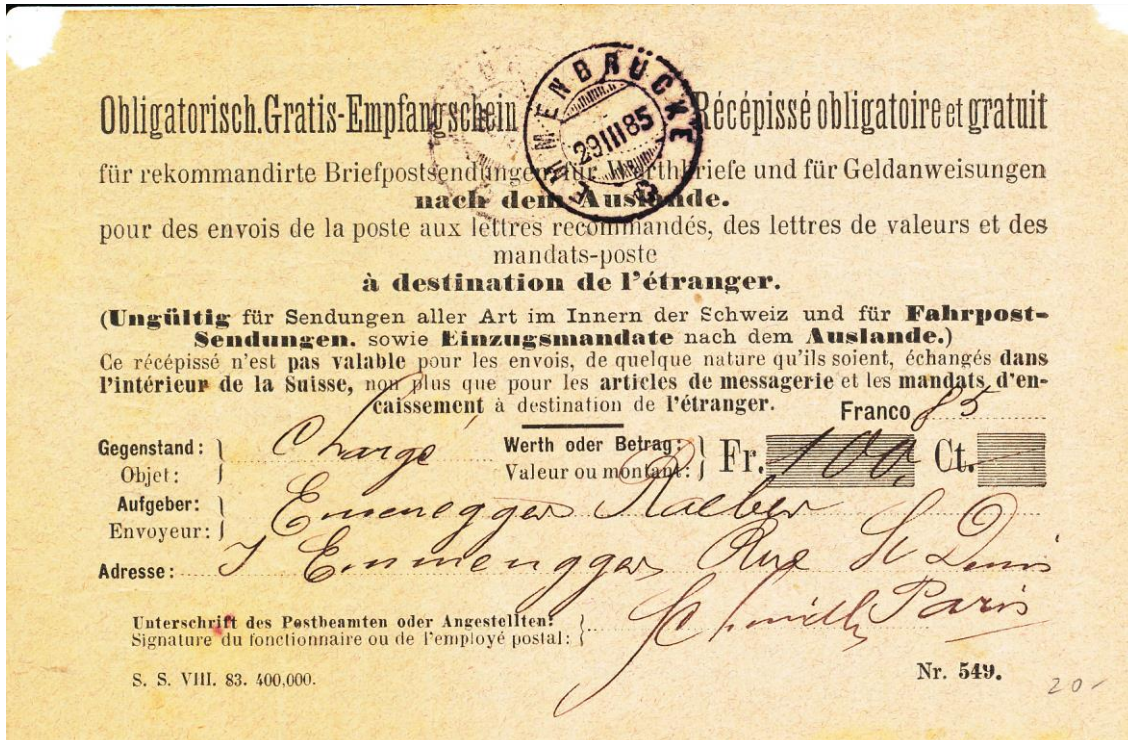 EMMENBRÜCKE
29 III 85
Obligatorisch. Gratis-Empfangschein Récépissé obligatoire et gratuit
für rekommandirte Briefpostsendungen, für Werthbriefe und für Geldanweisungen
nach dem Auslande.
pour des envois de la poste aux lettres recommandés, des lettres de valeurs et des
mandats-poste
à destination de l'étranger.
(Ungültig für Sendungen aller Art im Innern der Schweiz und für Fahrpost-
Sendungen. sowie Einzugsmandate nach dem Auslande.)
Ce récépissé n'est pas valable pour les envois, de quelque nature qu'ils soient, échangés dans
l'intérieur de la Suisse, non plus que pour les articles de messagerie et les mandats d'en-
caissement à destination de l'étranger. Franco 85
Gegenstand: } Chargé Werth oder Betrag: } Fr. 100. Ct. —
Objet: Valeur ou montant:
Aufgeber: } Emenegger Raeber
Envoyeur:
Adresse: J Emmenegger Rue St Denis
Paris
Unterschrift des Postbeamten oder Angestellten: }
Signature du fonctionnaire ou de l'employé postal:
S. S. VIII. 83. 400,000. Nr. 549.
20.-